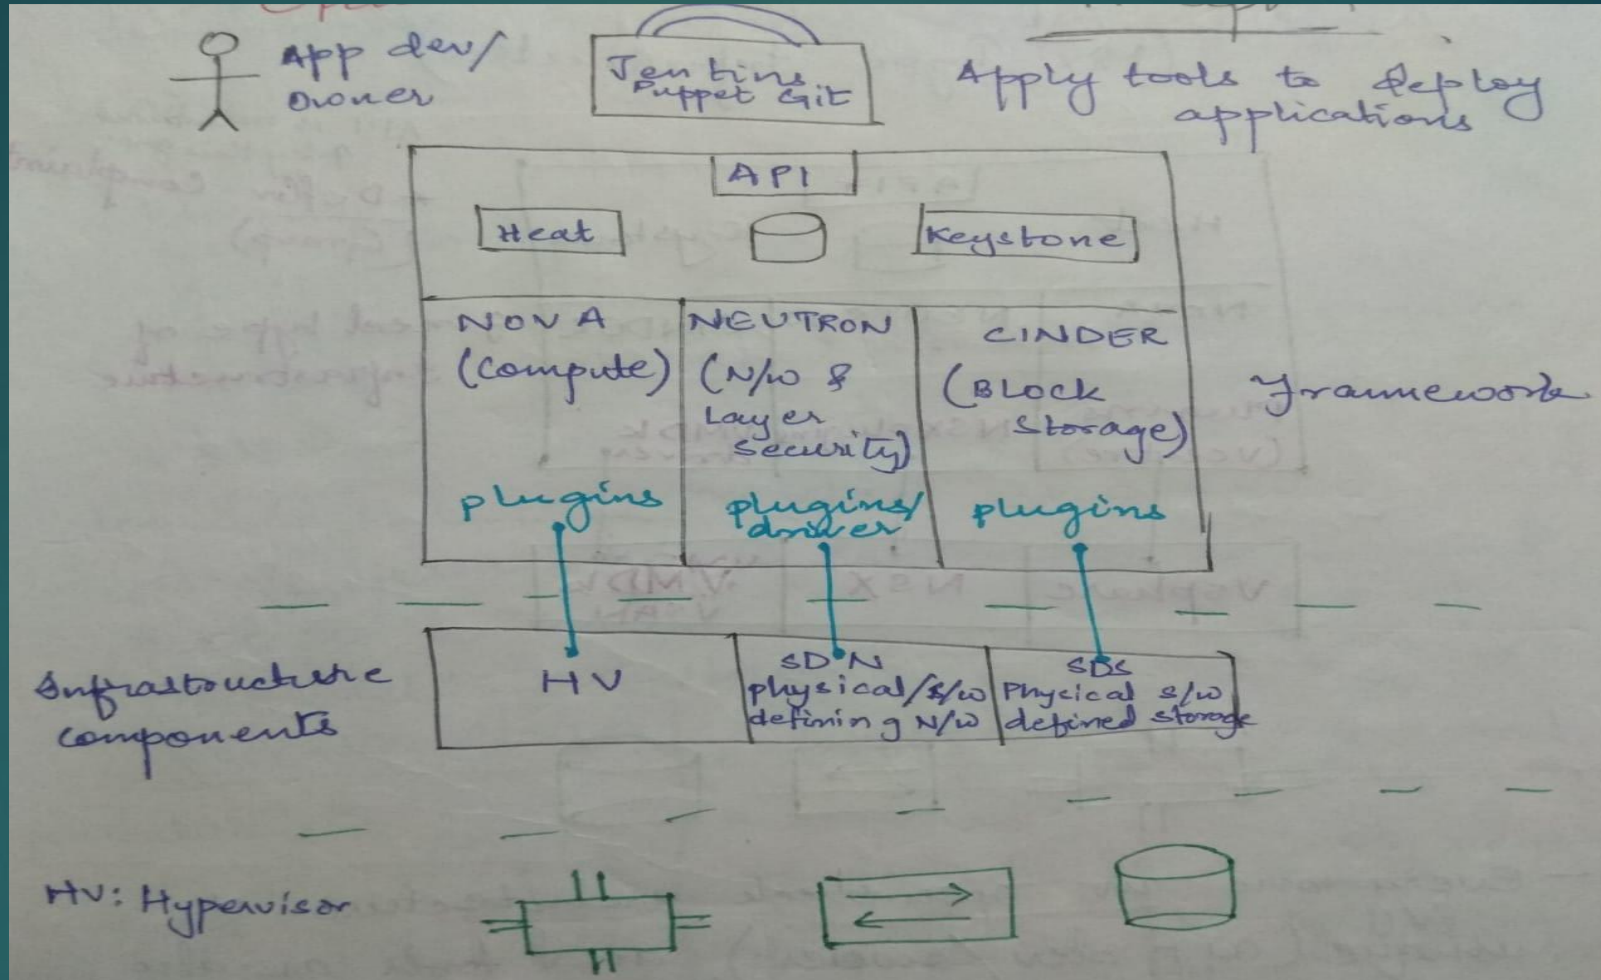 App dev/
Owner
Jenkins
Puppet Git
Apply tools to deploy
applications
API
Heat
Keystone
NOVA
(Compute)
plugins
NEUTRON
(N/w &
Layer
Security)
plugins/
driver
CINDER
(Block
Storage)
plugins
Framework
Infrastructure
components
HV
SDN
physical/s/w
defining N/w
SDS
Physical s/w
defined storage
HV: Hypervisor